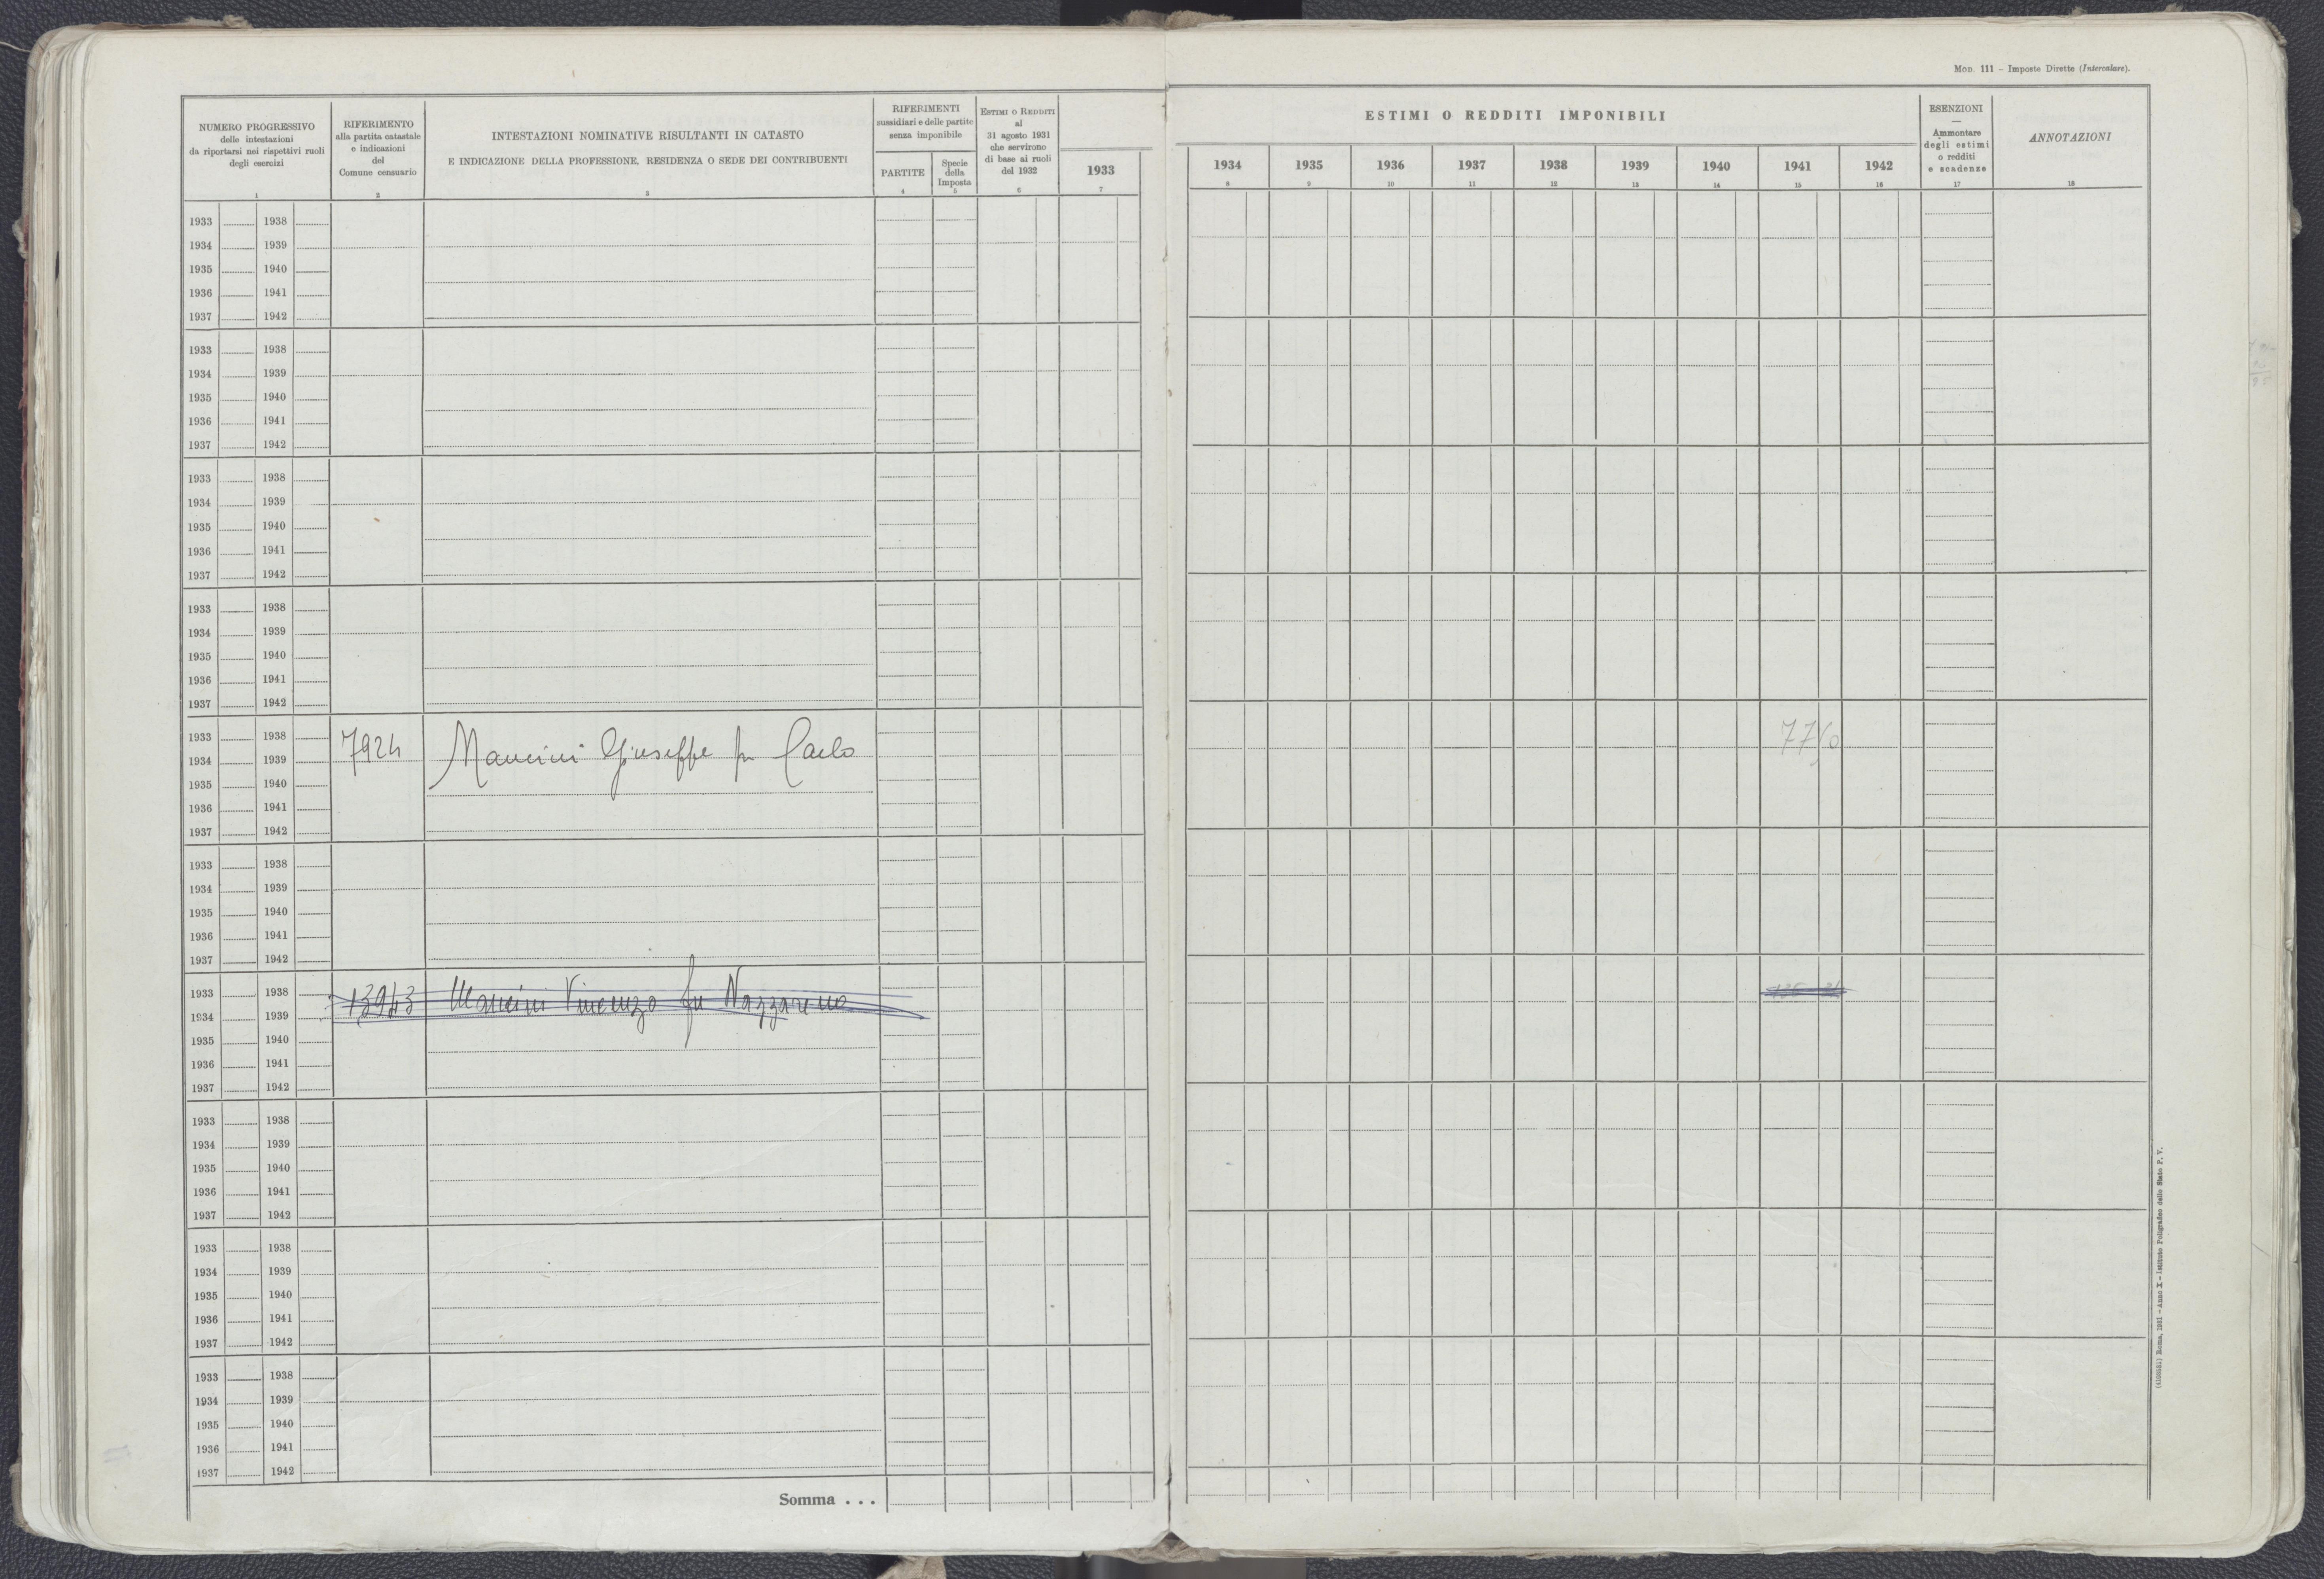 Mod. 111 - Imposte Dirette (Intercalare).
NUMERO PROGRESSIVO
delle intestazioni
da riportarsi nei rispettivi ruoli
degli esercizi
1
RIFERIMENTO
alla partita catastale
e indicazioni
del
Comune censuario
2
INTESTAZIONI NOMINATIVE RISULTANTI IN CATASTO
E INDICAZIONE DELLA PROFESSIONE, RESIDENZA O SEDE DEI CONTRIBUENTI
3
RIFERIMENTI
sussidiari e delle partite
senza imponibile
PARTITE
4
Specie
della
Imposta
5
Estimi o Redditi
al
31 agosto 1931
che servirono
di base ai ruoli
del 1932
6
1933
7
ESTIMI O REDDITI IMPONIBILI
1934 1935 1936 1937 1938 1939 1940 1941 1942
8 9 10 11 12 13 14 15 16
ESENZIONI
—
Ammontare
degli estimi
o redditi
e scadenze
17
ANNOTAZIONI
18
1933 1938
1934 1939
1935 1940
1936 1941
1937 1942
1933 1938
1934 1939
1935 1940
1936 1941
1937 1942
1933 1938
1934 1939
1935 1940
1936 1941
1937 1942
1933 1938
1934 1939
1935 1940
1936 1941
1937 1942
1933 1938
1934 1939
1935 1940
1936 1941
1937 1942
7924 Mancini Giuseppe fu Carlo
1933 1938
1934 1939
1935 1940
1936 1941
1937 1942
1933 1938
1934 1939
1935 1940
1936 1941
1937 1942
13943 Mancini Vincenzo fu Nazzareno
1933 1938
1934 1939
1935 1940
1936 1941
1937 1942
1933 1938
1934 1939
1935 1940
1936 1941
1937 1942
1933 1938
1934 1939
1935 1940
1936 1941
1937 1942
Somma . . .